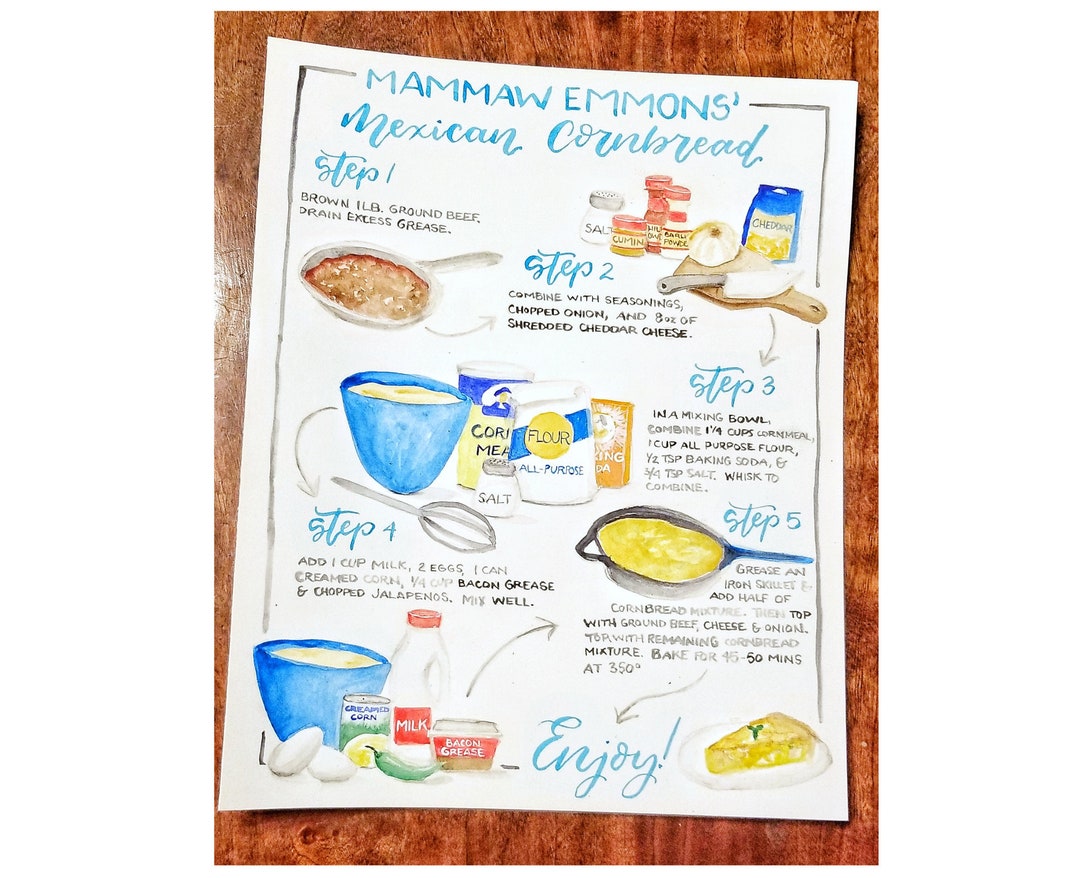 MAMMAW EMMONS'
Mexican Cornbread
Step 1
BROWN 1 LB. GROUND BEEF.
DRAIN EXCESS GREASE.
SALT
CUMIN
CHEDDAR
Step 2
COMBINE WITH SEASONINGS,
CHOPPED ONION, AND 8 oz OF
SHREDDED CHEDDAR CHEESE.
Step 3
IN A MIXING BOWL,
COMBINE 1 1/4 CUPS CORNMEAL,
1 CUP ALL PURPOSE FLOUR,
1/2 TSP BAKING SODA, &
3/4 TSP SALT. WHISK TO
COMBINE.
CORN
MEA
FLOUR
ALL-PURPOSE
KING
DA
SALT
Step 4
ADD 1 CUP MILK, 2 EGGS, 1 CAN
CREAMED CORN, 1/4 CUP BACON GREASE
& CHOPPED JALAPENOS. MIX WELL.
Step 5
GREASE AN
IRON SKILLET &
ADD HALF OF
CORNBREAD MIXTURE. THEN TOP
WITH GROUND BEEF, CHEESE & ONION.
TOP WITH REMAINING CORNBREAD
MIXTURE. BAKE FOR 45-50 MINS
AT 350°
CREAMED
CORN
MILK
BACON
GREASE
Enjoy!